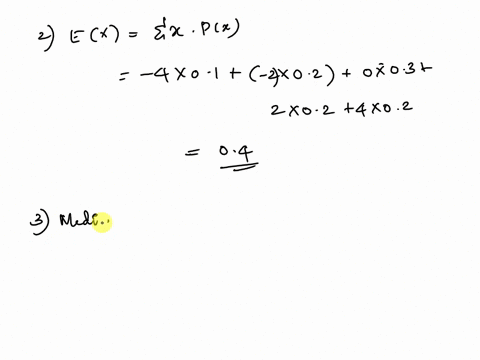 2) E(X) = Σx . P(x)
= -4×0.1 + (-2)×0.2) + 0×0.3+
2×0.2 +4×0.2
= 0.4
3)